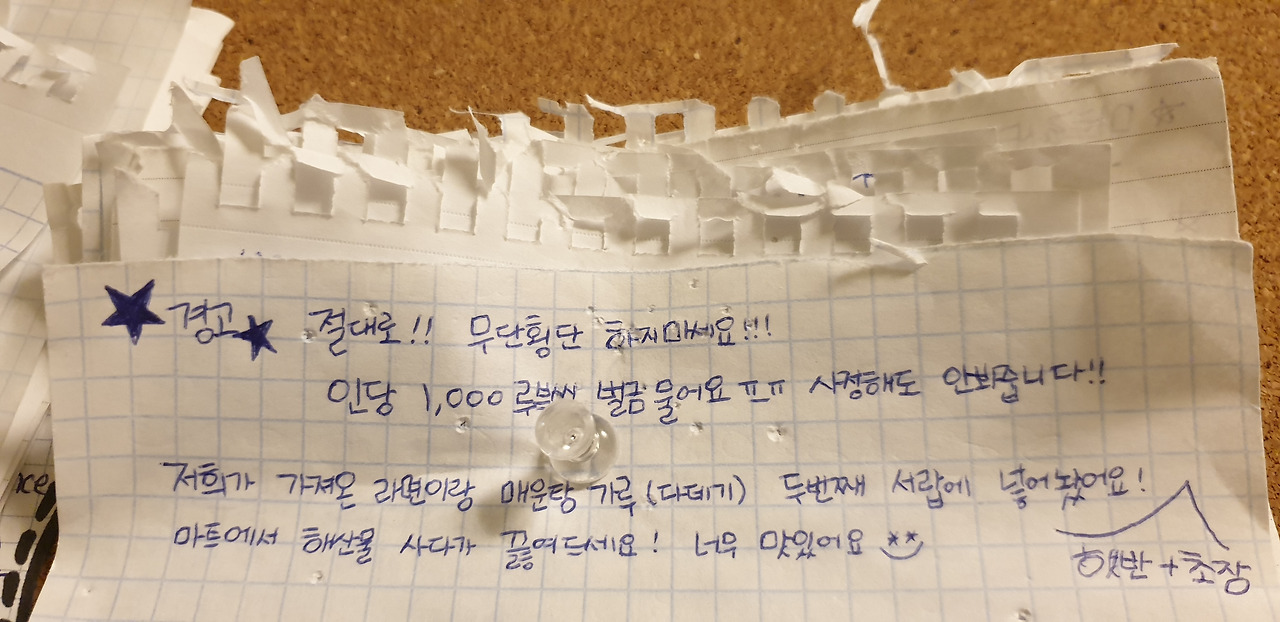 ★경고★ 절대로!! 무단횡단 하지마세요!!!
인당 1,000루블씩 벌금 물어요 ㅠㅠ 사정해도 안봐줍니다!!
저희가 가져온 라면이랑 매운탕 가루(다데기) 두번째 서랍에 넣어놨어요!
마트에서 해산물 사다가 끓여드세요! 너무 맛있어요
햇반+초장